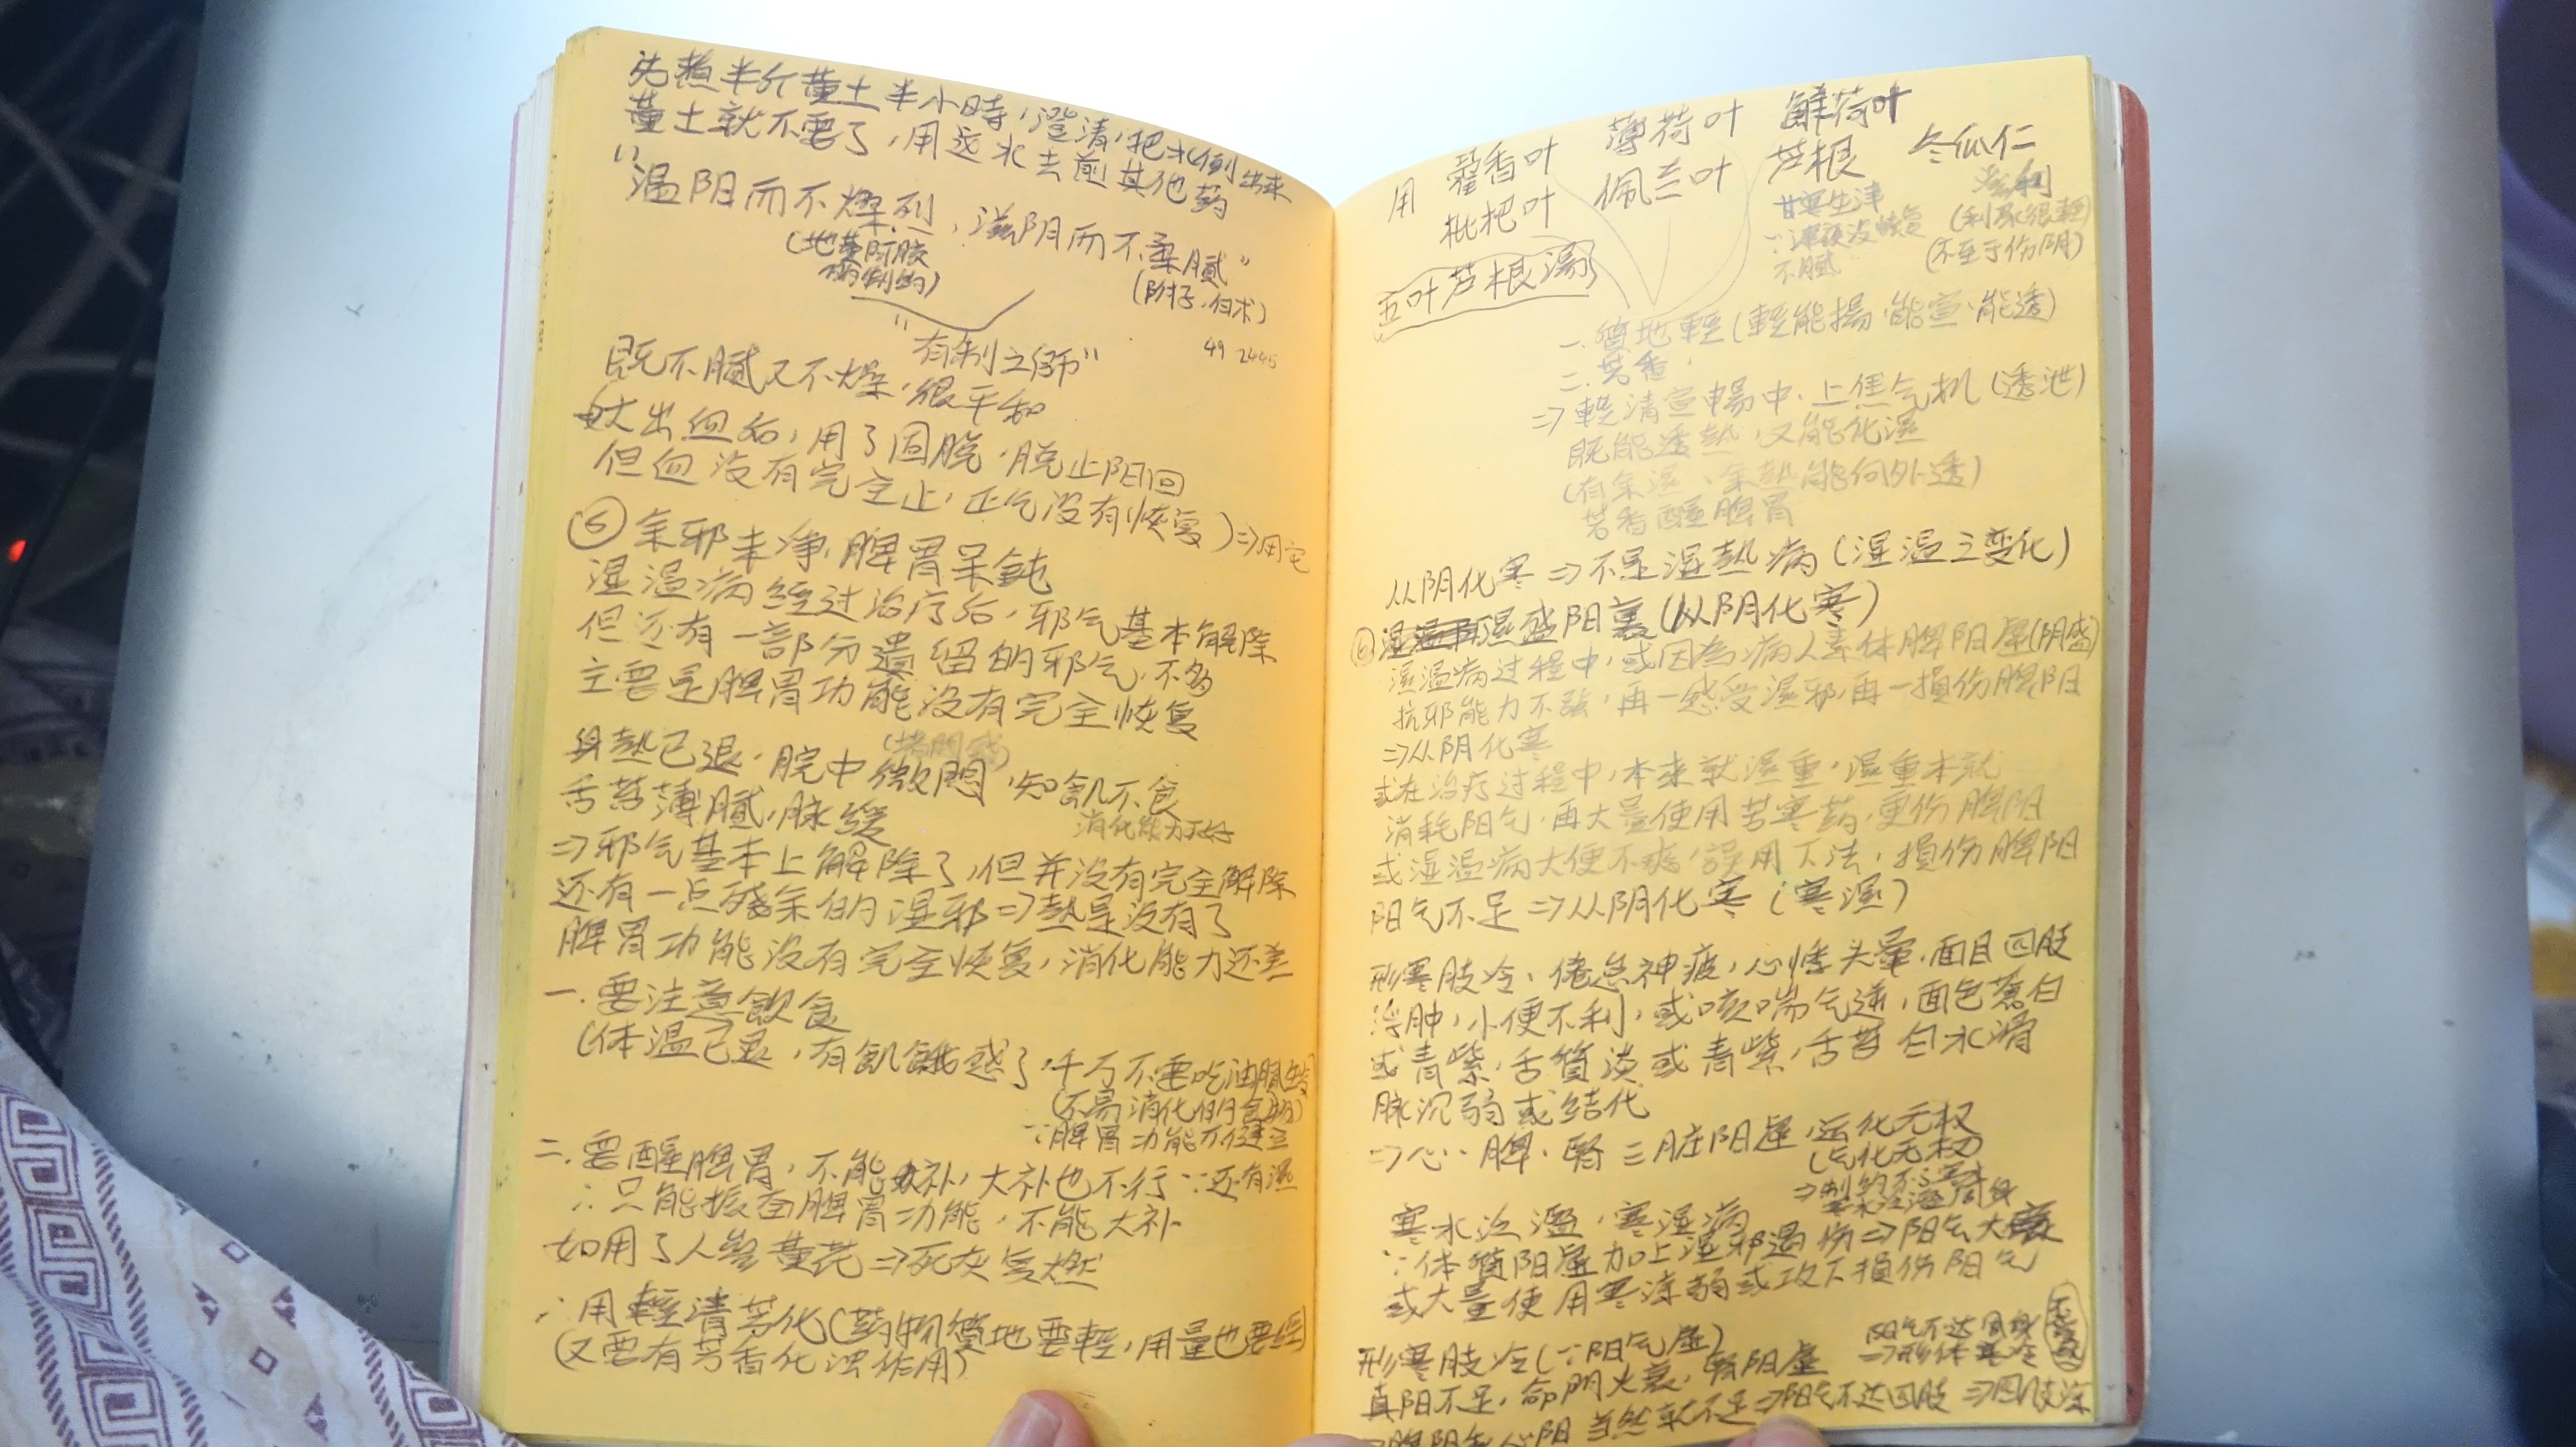 先煮半斤黄土半小時，澄清，把水倒出来
黄土就不要了，用这水去煎其他药
"温阳而不燥烈，滋阴而不柔腻"
(地黄阿胶
制约)
(附子、白术)
"有制之师"
49 2445
既不腻又不燥，很平和
大出血后，用了固脱，脱止阳回
但血没有完全止，正气没有恢复)⇒用它
⑤余邪未净，脾胃呆鈍
湿温病经过治疗后，邪气基本解除
但还有一部分遺留的邪气，不多
主要是脾胃功能没有完全恢复
身熱已退，脘中微悶，知飢不食
(堵悶感)
消化能力不好
舌苔薄腻，脉缓
⇒邪气基本上解除了，但并没有完全解除
还有一点残余的湿邪⇒熱是没有了
脾胃功能没有完全恢复，消化能力还差
一.要注意飲食
(体温已退，有飢餓感了，千万不要吃油腻
(不易消化的食物)
∵脾胃功能不健全
二.要醒脾胃，不能补，大补也不行∵还有濕
∴只能振奋脾胃功能，不能大补
如用了人參黄芪⇒死灰复燃
∴用輕清芳化(药物質地要輕，用量也要輕)
(又要有芳香化浊作用)
用 藿香叶 薄荷叶 鮮荷叶
枇杷叶 佩兰叶 芦根 冬瓜仁
五叶芦根湯
甘寒生津
∵津液没恢复
不腻
淡利
(利尿很輕)
(不至于伤阴)
一.質地輕(輕能揚、能宣、能透)
二.芳香，
⇒輕清宣暢中、上焦气机(透泄)
既能透熱，又能化湿
(有余湿、余熱能向外透)
芳香醒脾胃
从阴化寒⇒不是濕熱病(湿温之变化)
⑥湿盛阳衰(从阴化寒)
濕温病过程中，或因為病人素体脾阳虚(阴盛)
抗邪能力不強，再一感受濕邪，再一損伤脾阳
⇒从阴化寒
或在治疗过程中，本来就濕重，濕重本就
消耗阳气，再大量使用苦寒药，更伤脾阳
或湿温病大便不爽，誤用下法，損伤脾阳
阳气不足⇒从阴化寒(寒濕)
形寒肢冷，倦怠神疲，心悸头暈，面目四肢
浮肿，小便不利，或咳喘气逆，面色蒼白
或青紫，舌質淡或青紫，舌苔白水滑
脉沉弱或结代
⇒心、脾、腎三脏阳虚，运化无权
(气化无权)
⇒制约不了寒水
寒水泛濫周身
寒水泛濫，寒湿病
∵体質阳虚加上湿邪遏伤⇒阳气大衰
或大量使用寒凉药或攻下損伤阳气
形寒肢冷(∵阳气虚)
阳气不达周身
⇒形体寒冷
真阳不足，命門火衰，腎阳虚
⇒脾阳和心阳当然就不足⇒阳气不达四肢⇒四肢凉